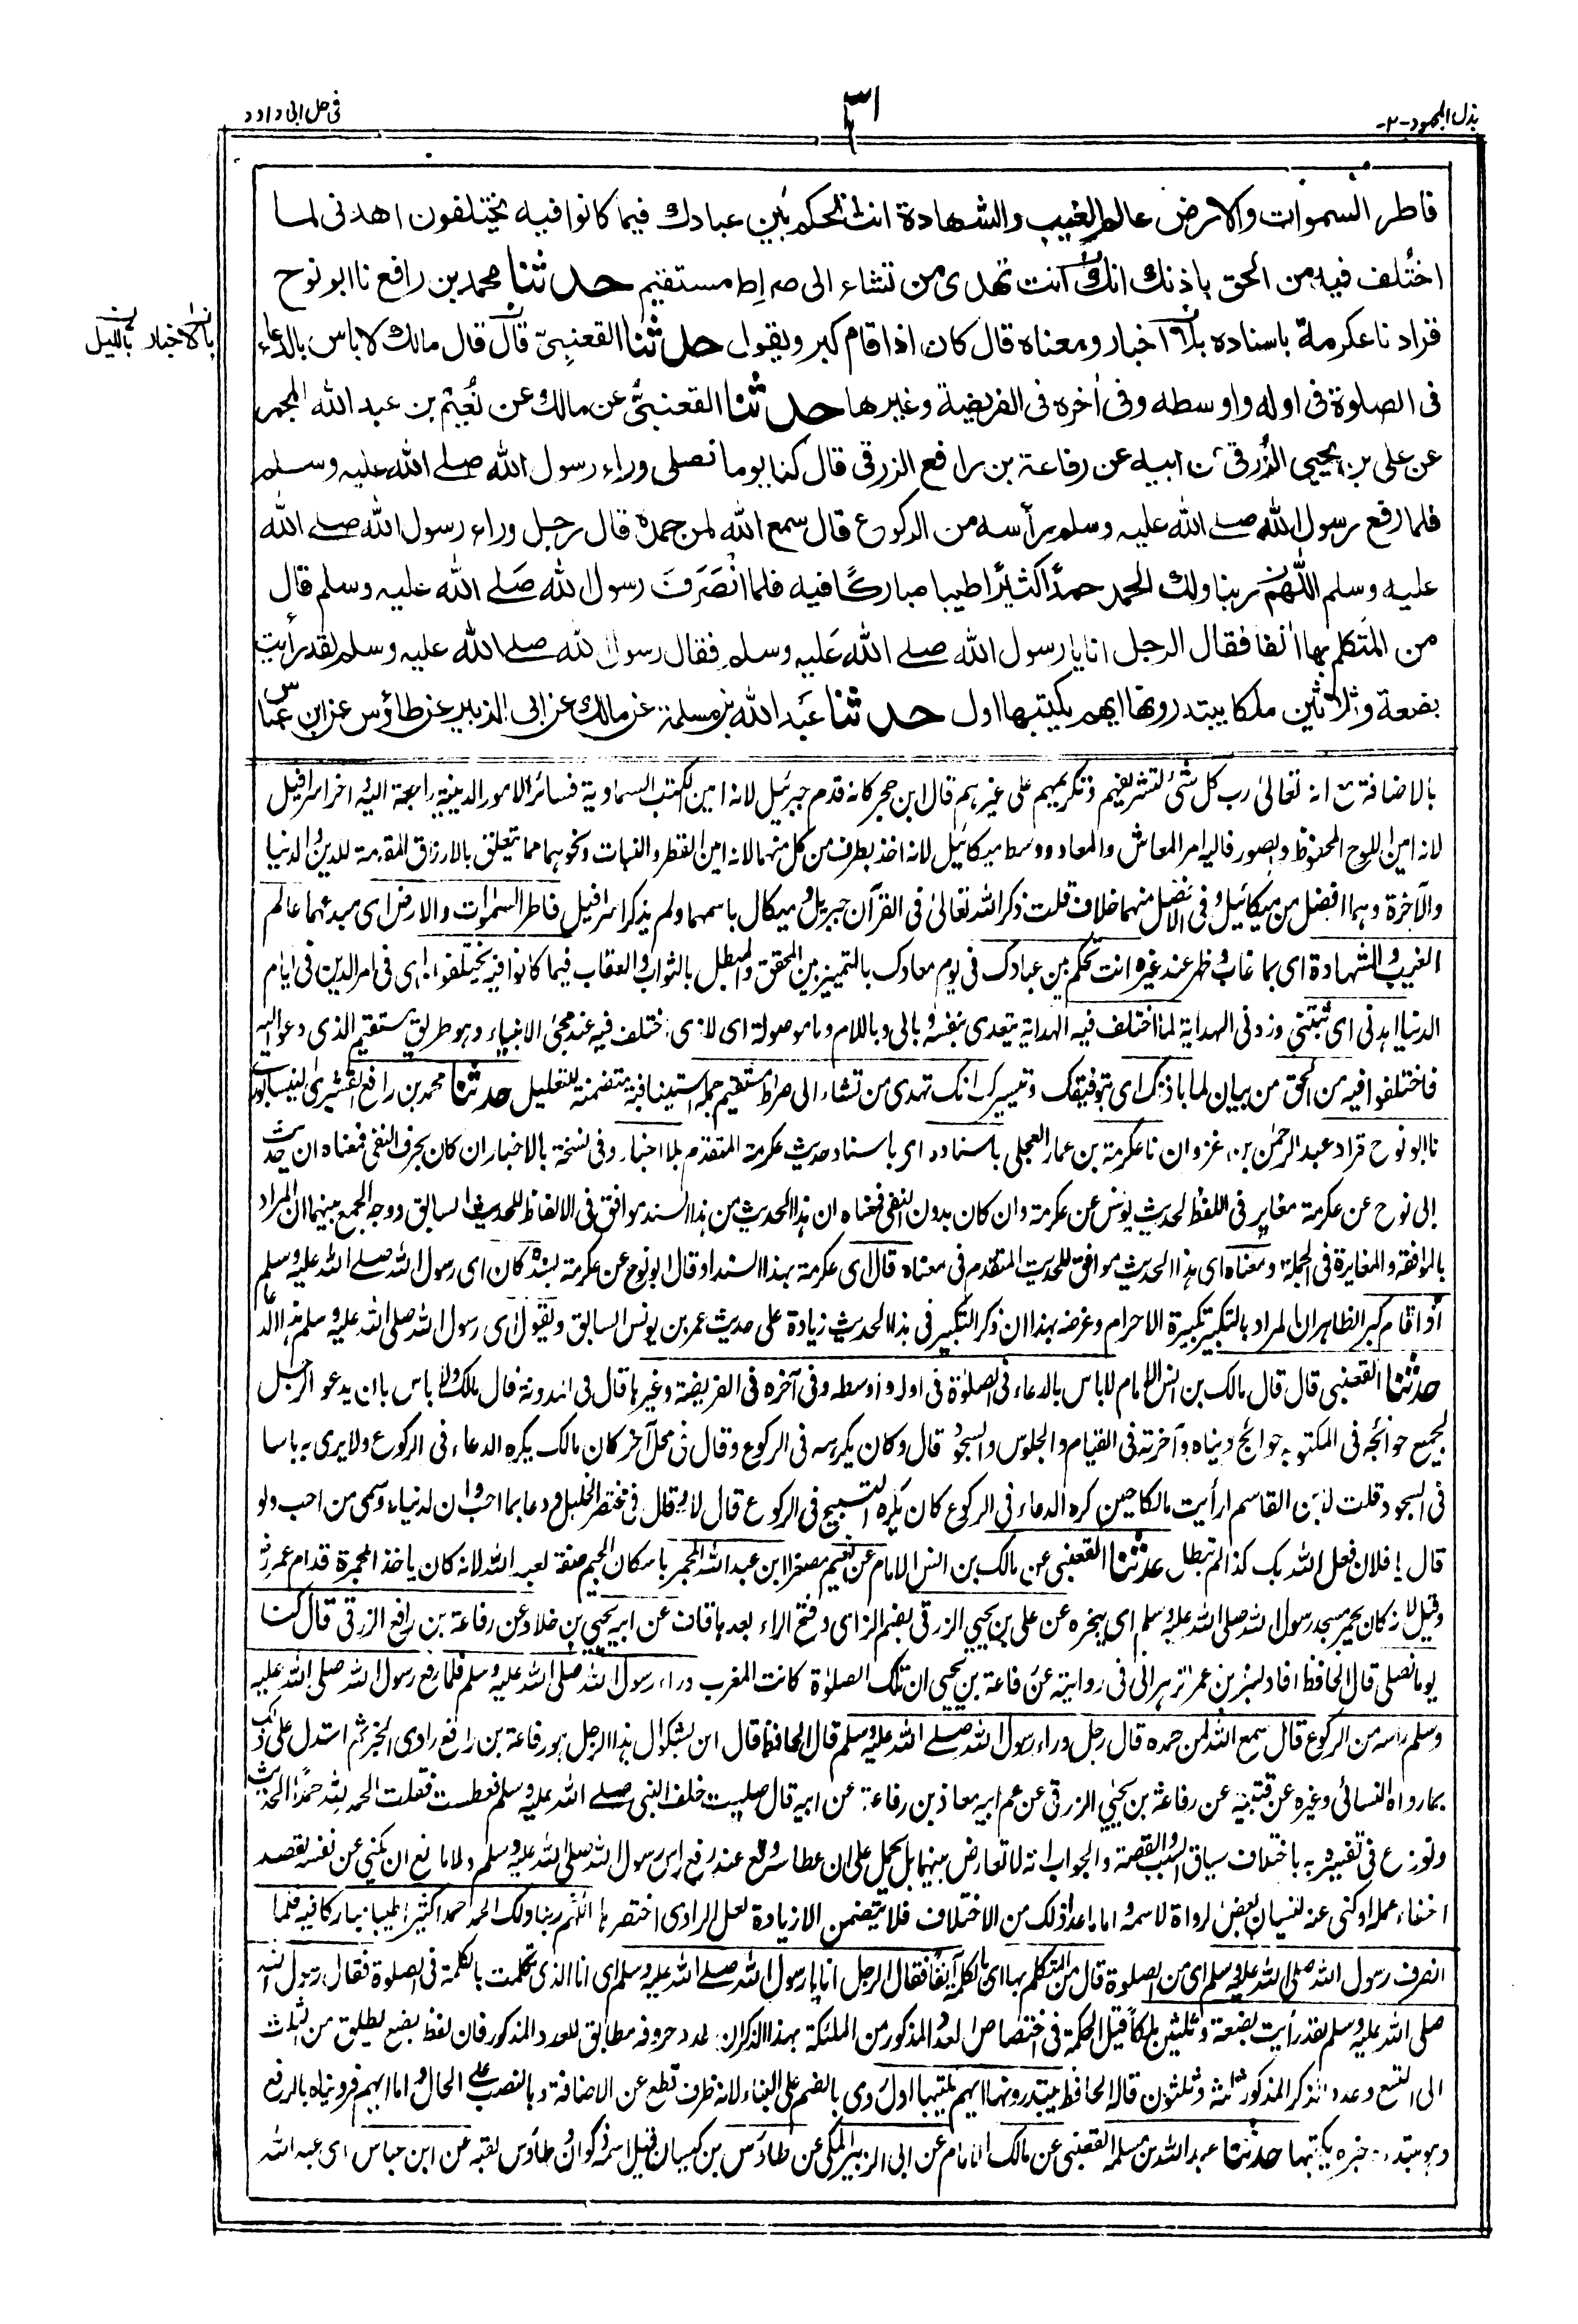 بذل المجهود-٢-
٣١
فى حل ابى داود
فاطر السموات والارض عالم الغيب والشهادة انت تحكم بين عبادك فيما كانوا فيه يختلفون اهدنى لما
اختُلف فيه من الحق باذنك انك انت تهدى من تشاء الى صراط مستقيم حدثنا محمد بن رافع نا ابو نوح
قراد نا عكرمة باسناده بلا اخبار ومعناه قال كان اذا قام كبر ويقول حدثنا القعنبىّ قال قال مالك لا باس بالدعاء
فى الصلوة فى اوله واوسطه وفى اٰخره فى الفريضة وغيرها حدثنا القعنبىُّ عن مالك عن نُعيم بن عبد الله المجمر
عن على بن يحيى الزُرقى عن ابيه عن رفاعة بن رافع الزرقى قال كنا يوما نصلى وراء رسول الله صلے الله عليه وسلم
فلما رفع رسول الله صلے الله عليه وسلم رأسه من الركوع قال سمع الله لمن حمده قال رجل وراء رسول الله صلے الله
عليه وسلم اللّٰهم ربنا ولك الحمد حمدًا كثيرًا طيبا مباركًا فيه فلما انْصَرَفَ رسول الله صَلے الله عليه وسلم قال
من المُتَكلم بها اٰنفا فقال الرجل انا يا رسول الله صلے الله عَليه وسلم فقال رسول الله صلے الله عليه وسلم لقد رأيت
بضعة وثلاثين ملكا يبتدرونها ايهم يكتبها اول حدثنا عَبد الله بن مسلمة عن مالك عن ابى الزبير عن طاؤس عن ابن عباس
بالاخبار بالليل
بالاضافة مع انه تعالىٰ رب كل شئ لتشريفهم وتكريمهم على غيرهم قال ابن حجر كانه قدم جبرئيل لانه امين الكتب السماوية فسائر الامور الدينية راجعة اليه اخر اسرافيل
لانه امين اللوح المحفوظ والصور فاليه امر المعاش والمعاد ووسط ميكائيل لانه اخذ بطرف من كل منهما لانه امين القطر والنبات ونحوهما مما يتعلق بالارزاق المقومة للدين والدنيا
والآخرة وهما افضل من ميكائيل وفى الافضل منهما خلاف قلت ذكر الله تعالىٰ فى القرآن جبريل وميكال باسمهما ولم يذكر اسرافيل فاطر السمٰوات والارض اى مبدعهما عالم
الغيب والشهادة اى بما غاب وظهر عند غيره انت تحكم بين عبادك فى يوم معادك بالتمييز بين المحقق والمبطل بالثواب والعقاب فيما كانوا فيه يختلفون اى فى امر الدين فى ايام
الدنيا اهدنى اى ثبتنى وزدنى الهداية لما اختلف فيه الهداية يتعدى بنفسه وبالى وباللام وما موصولة اى للذى اختلف فيه عند مجئ الانبياء وهو طريق مستقيم الذى دعوا اليه
فاختلفوا فيه من الحق من بيان لما باذنك اى بتوفيقك وتيسيرك انك تهدى من تشاء الى صراط مستقيم جملة استينافية متضمنة للتعليل حدثنا محمد بن رافع القشيرى النيسابورى
نا ابو نوح قراد عبد الرحمٰن بن غزوان نا عكرمة بن عمار العجلى باسناده اى باسناد حديث عكرمة المتقدم بلا اخبار وفى نسخة بالاخبار ان كان بحرف النفى فمعناه ان حديث
ابى نوح عن عكرمة مغاير فى اللفظ لحديث يونس عن عكرمة وان كان بدون النفى فمعناه ان هذا الحديث من هذا السند موافق فى الالفاظ للحديث السابق ووجه الجمع بينهما ان المراد
بالموافقة والمغايرة فى الجملة ومعناه اى هذا الحديث موافق للحديث المتقدم فى معناه قال اى عكرمة بهذا السند او قال ابو نوح عن عكرمة بسنده كان اى رسول الله صلے الله عليه وسلم
اذا قام كبر الظاهر ان المراد بالتكبير تكبيرة الاحرام وغرضه بهذا ان ذكر التكبير فى هذا الحديث زيادة على حديث عمر بن يونس السابق ويقول اى رسول الله صلى الله عليه وسلم هذا الدعاء
حدثنا القعنبى قال قال مالك بن انس الامام لا باس بالدعاء فى الصلوٰة فى اوله واوسطه وفى آخره فى الفريضة وغيرها قال فى المدونة قال مالك ولا باس بان يدعو الرجل
لجميع حوائجه فى المكتوبة حوائج دنياه وآخرته فى القيام والجلوس والسجود قال وكان يكرهه فى الركوع وقال فى محل آخر كان مالك يكره الدعاء فى الركوع ولا يرى به باسا
فى السجود قلت لابن القاسم ارأيت مالكا حين كره الدعاء فى الركوع كان يكره التسبيح فى الركوع قال لا وقال فى مختصر الخليل ودعا بما احب وان لدنياه وسمى من احب ولو
قال يا فلان فعل الله بك كذا لم تبطل حدثنا القعنبى عن مالك بن انس الامام عن نعيم مصغرا ابن عبد الله المجمر باسكان الجيم صفة لعبد الله لانه كان ياخذ المجمرة قدام عمر رض
وقيل لانه كان يجمر مسجد رسول الله صلى الله عليه وسلم اى يبخره عن على بن يحيى الزرقى بضم الزاى وفتح الراء بعدها قاف عن ابيه يحيى بن خلاد عن رفاعة بن رافع الزرقى قال كنا
يوما نصلى قال الحافظ افاد بشر بن عمر الزهرانى فى روايته عن رفاعة بن يحيى ان تلك الصلوٰة كانت المغرب وراء رسول الله صلى الله عليه وسلم فلما رفع رسول الله صلى الله عليه
وسلم راسه من الركوع قال سمع الله لمن حمده قال رجل وراء رسول الله صلے الله عليه وسلم قال الحافظ قال ابن بشكوال هذا الرجل هو رفاعة بن رافع راوى الخبر ثم استدل على ذلك
بما رواه النسائى وغيره عن قتيبة عن رفاعة بن يحيٰى الزرقى عن عم ابيه معاذ بن رفاعة عن ابيه قال صليت خلف النبى صلے الله عليه وسلم فعطست فقلت الحمد لله حمدًا الحديث
ونوزع فى تفسيره به باختلاف سياق السبب والقصة والجواب انه لا تعارض بينهما بل يحمل على ان عطاسه وقع عند رفع راس رسول الله صلى الله عليه وسلم ولا مانع ان يكنى عن نفسه لقصد
اخفاء عمله او كنى عنه لنسيان بعض الرواة لاسمه واما ما عدا ذلك من الاختلاف فلا يتضمن الا زيادة لعل الراوى اختصرها اللّٰهم ربنا ولك الحمد حمدا كثيرا طيبا مباركا فيه فلما
انصرف رسول الله صلى الله عليه وسلم اى من الصلوة قال من المتكلم بها اى بالكلمة آنفًا فقال الرجل انا يا رسول الله صلے الله عليه وسلم اى انا الذى تكلمت بالكلمة فى الصلوة فقال رسول الله
صلى الله عليه وسلم لقد رأيت بضعة وثلثين ملكاً قيل الحكمة فى اختصاص العدد المذكور من الملٰئكة بهذا الذكر ان عدد حروفه مطابق للعدد المذكور فان لفظ بضع يطلق من الثلاث
الى التسع وعدد الذكر المذكور ثلثة وثلثون قاله الحافظ يبتدرونها ايهم يكتبها اول روى بالضم على البناء لانه ظرف قطع عن الاضافة وبالنصب على الحال واما ايهم فرويناه بالرفع
وهو مبتدء خبره يكتبها حدثنا عبد الله بن مسلمة القعنبى عن مالك الامام عن ابى الزبير المكى عن طاؤس بن كيسان قيل اسمه ذكوان وطاؤس لقبه عن ابن عباس اى عبد الله